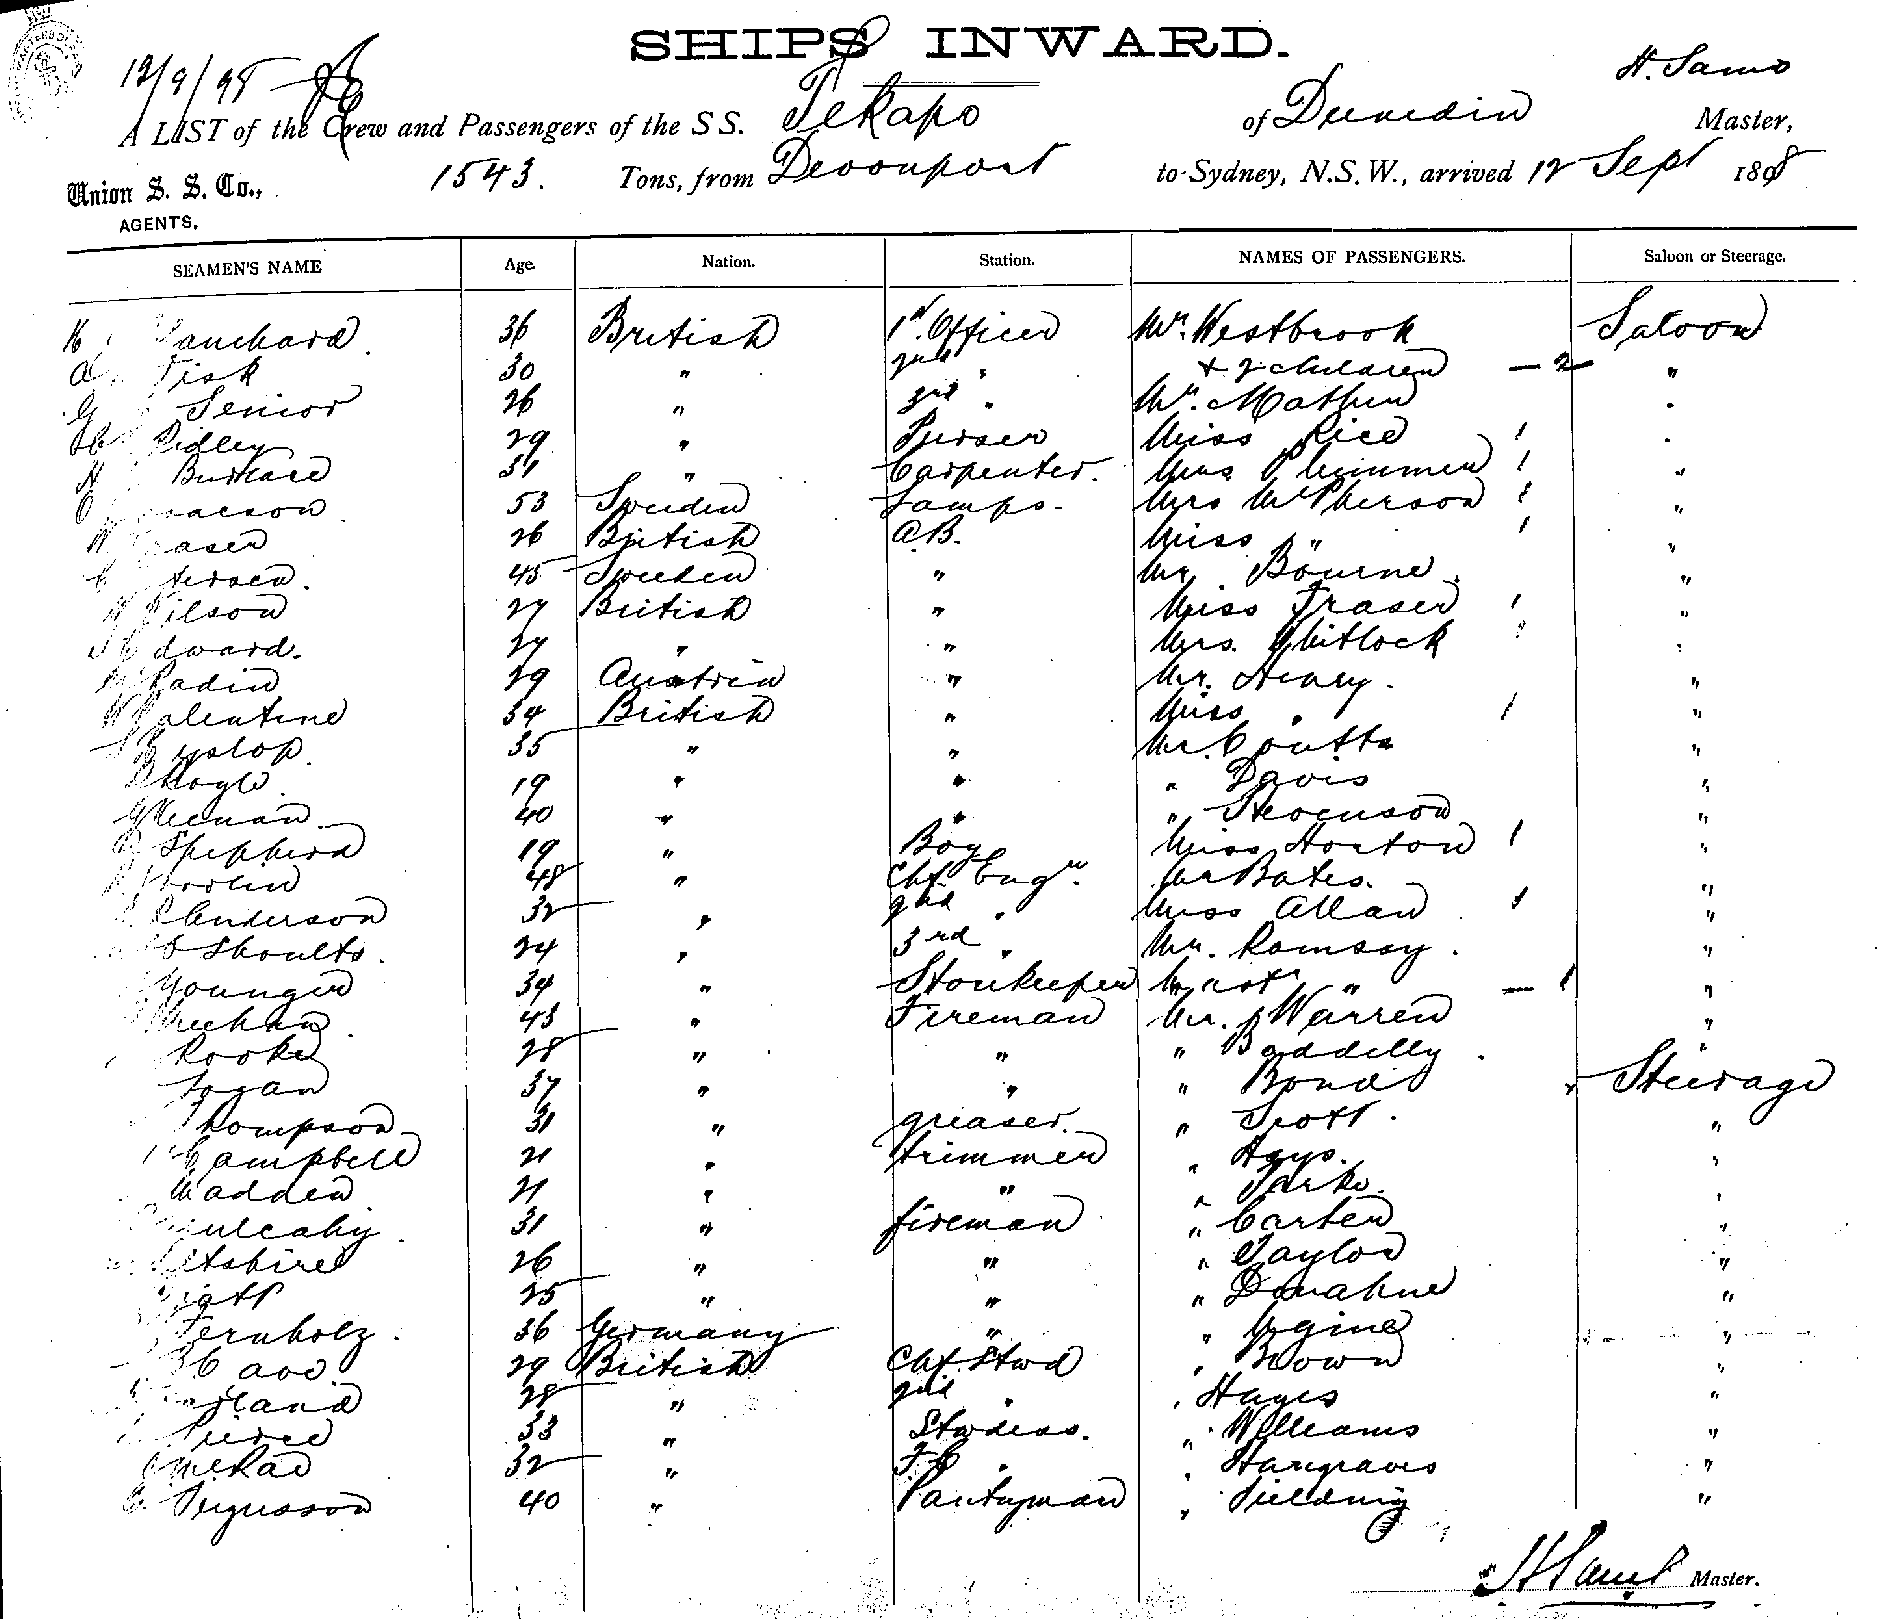 SHIPS INWARD.
12/9/98 H. Samo
A LIST of the Crew and Passengers of the S S. Tekapo of Dunedin Master,
Union S. S. Co., 1543. Tons, from Devonport to Sydney, N.S.W., arrived 12 Sept 1898
AGENTS.
SEAMEN'S NAME Age. Nation. Station. NAMES OF PASSENGERS. Saloon or Steerage.
36 British 1st Officer Mr. Westbrook Saloon
A Fisk 30 " 2nd " + 2 children — 2 "
G Senior 26 " 3rd " "
Ridley 29 " Purser Miss Rice 1 "
31 " Carpenter. Mrs 1 "
53 Sweden Lamps. Mrs McPherson 1 "
26 British A.B. Miss " 1 "
45 Sweden " Mr Bourne "
Wilson 27 British " Miss Fraser 1 "
Edward. 27 " " Mrs. Whitlock "
Radin 29 Austria " Mr. Henry. "
W Valentine 34 British " Miss " 1 "
Hyslop 35 " " Mr. Coutts "
19 " " " Davis "
40 " " " Stevenson "
Shepherd 19 " Boy Miss Horton 1 "
48 " Chf Engr. Mr Bates. "
Anderson 32 " 2nd " Miss Allan 1 "
Shoults. 24 " 3rd " Mr. Ramsay. "
Younger 34 " Storekeeper Mast " — 1 "
Meehan 43 " Fireman Mr. Warren "
Rooke 28 " " " Baddelly "
Logan 37 " " " Bond Steerage
Thompson 31 " greaser. " Scott. "
Campbell 21 " trimmer " "
Madden 21 " " " "
Mulcahy 31 " fireman " Carter "
26 " " " Taylor "
25 " " " Donahue "
Fernholz. 36 Germany " " "
29 British Chf. Stwd " Brown "
28 " 2nd " " Hayes "
Pierce 33 " Stwdess. " Williams "
McRae 32 " " Hargraves "
Fergusson 40 " Pantryman " Fielding "
H Samo Master.